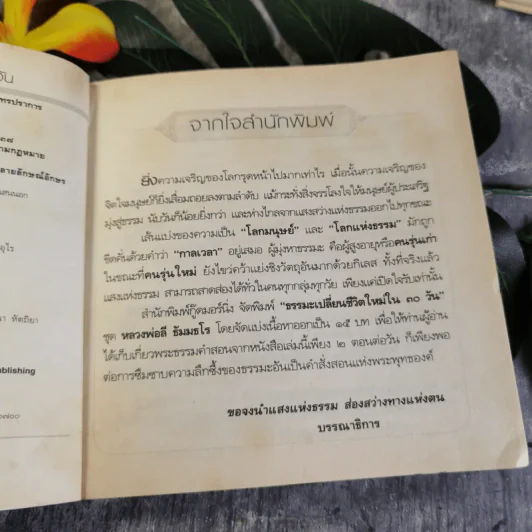 วัน
ทรปราการ
ามกฎหมาย
ายลักษณ์อักษร
จากใจสำนักพิมพ์
ยิ่งความเจริญของโลกรุดหน้าไปมากเท่าไร เมื่อนั้นความเจริญของ
จิตใจมนุษย์ก็ยิ่งเสื่อมถอยลงตามลำดับ แม้กระทั่งสิ่งจรรโลงใจให้มนุษย์ผู้ประเสริฐ
มุ่งสู่ธรรม นับวันก็น้อยยิ่งกว่า และห่างไกลจากแสงสว่างแห่งธรรมออกไปทุกขณะ
เส้นแบ่งของความเป็น "โลกมนุษย์" และ "โลกแห่งธรรม" มักถูก
ขีดคั่นด้วยคำว่า "กาลเวลา" อยู่เสมอ ผู้มุ่งหาธรรมะ คือผู้สูงอายุหรือคนรุ่นเก่า
ในขณะที่คนรุ่นใหม่ ยังไขว่คว้าแย่งชิงวัตถุอันมากด้วยกิเลส ทั้งที่จริงแล้ว
แสงแห่งธรรม สามารถสาดส่องได้ทั่วในคนทุกกลุ่มทุกวัย เพียงแค่เปิดใจรับเท่านั้น
สำนักพิมพ์กู๊ดมอร์นิ่ง จัดพิมพ์ "ธรรมะเปลี่ยนชีวิตใหม่ใน ๓๐ วัน"
ชุด หลวงพ่อลี ธัมมธโร โดยจัดแบ่งเนื้อหาออกเป็น ๑๕ บท เพื่อให้ท่านผู้อ่าน
ได้เก็บเกี่ยวพระธรรมคำสอนจากหนังสือเล่มนี้เพียง ๒ ตอนต่อวัน ก็เพียงพอ
ต่อการซึมซาบความลึกซึ้งของธรรมะอันเป็นคำสั่งสอนแห่งพระพุทธองค์
ublishing
ขอจงนำแสงแห่งธรรม ส่องสว่างทางแห่งตน
บรรณาธิการ